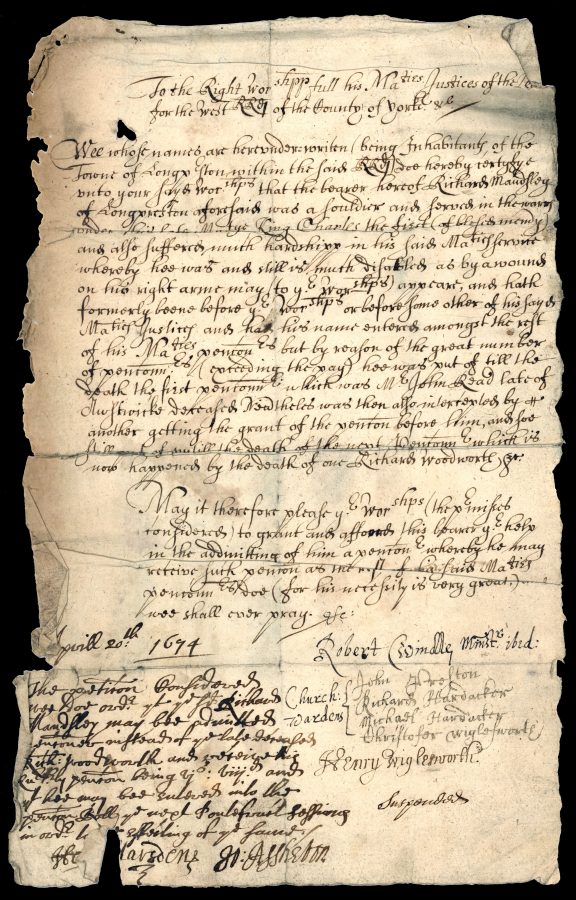 To the Right Worshippfull his Maties Justices of the
for the west Rideing of the County of Yorke. &c
Wee whose names are hereunder written (being Inhabitants of the
Towne of Longpreston within the said Rideing) doe hereby certyfye
unto your sayd Worships that the bearer hereof Richard Maudsley
of Longpreston aforesaid was a souldier and served in the warrs
under King Charles the first (of blessed memory)
and also suffered much hardshipp in his said Maties service
whereby hee was and still is much disabled as by a wound
on his right arme may (to yr Worships) appeare, and hath
formerly beene before yr Worships or before some other of his sayd
Maties Justices and had his name entered amongst the rest
of his Maties pencons but by reason of the great number
of penconrs (exceeding the pay) hee was put of till the
death the first penconr which was Mr John Read late of
Awstwicke deceased Nedtheles was then also intercepted by
another getting the grant of the pencon before him, and soe
still put of untill the death of the next Penconr which is
now happened by the death of one Richard Woodworth &c.
May it therefore please yr Worships (the pmises
considered) to grant and afford this bearer yr help
in the admitting of him a penconr whereby he may
receive such pencon as the rest of his said Maties
penconrs doe (for his necessity is very great)
wee shall ever pray. &c:
Aprill 20th: 1674
Robert Windle Ministr ibid:
Church:
Wardens
John Preston
Richard Hardacker
Michael Hardacker
Christofer Wiglesworth
Henry Wiglesworth.
Suspended
The petition Considered
wee doe ordr yt ye sd Richard
Maudsley may bee admitted
penconer instead of ye late deceased
Rich: Woodworth and receive his
pencon being and
yt hee may bee entered into the
pencon Roll ye next Pontefract Sessions
in ordr to ye setling of ye same.
Jo: Assheton